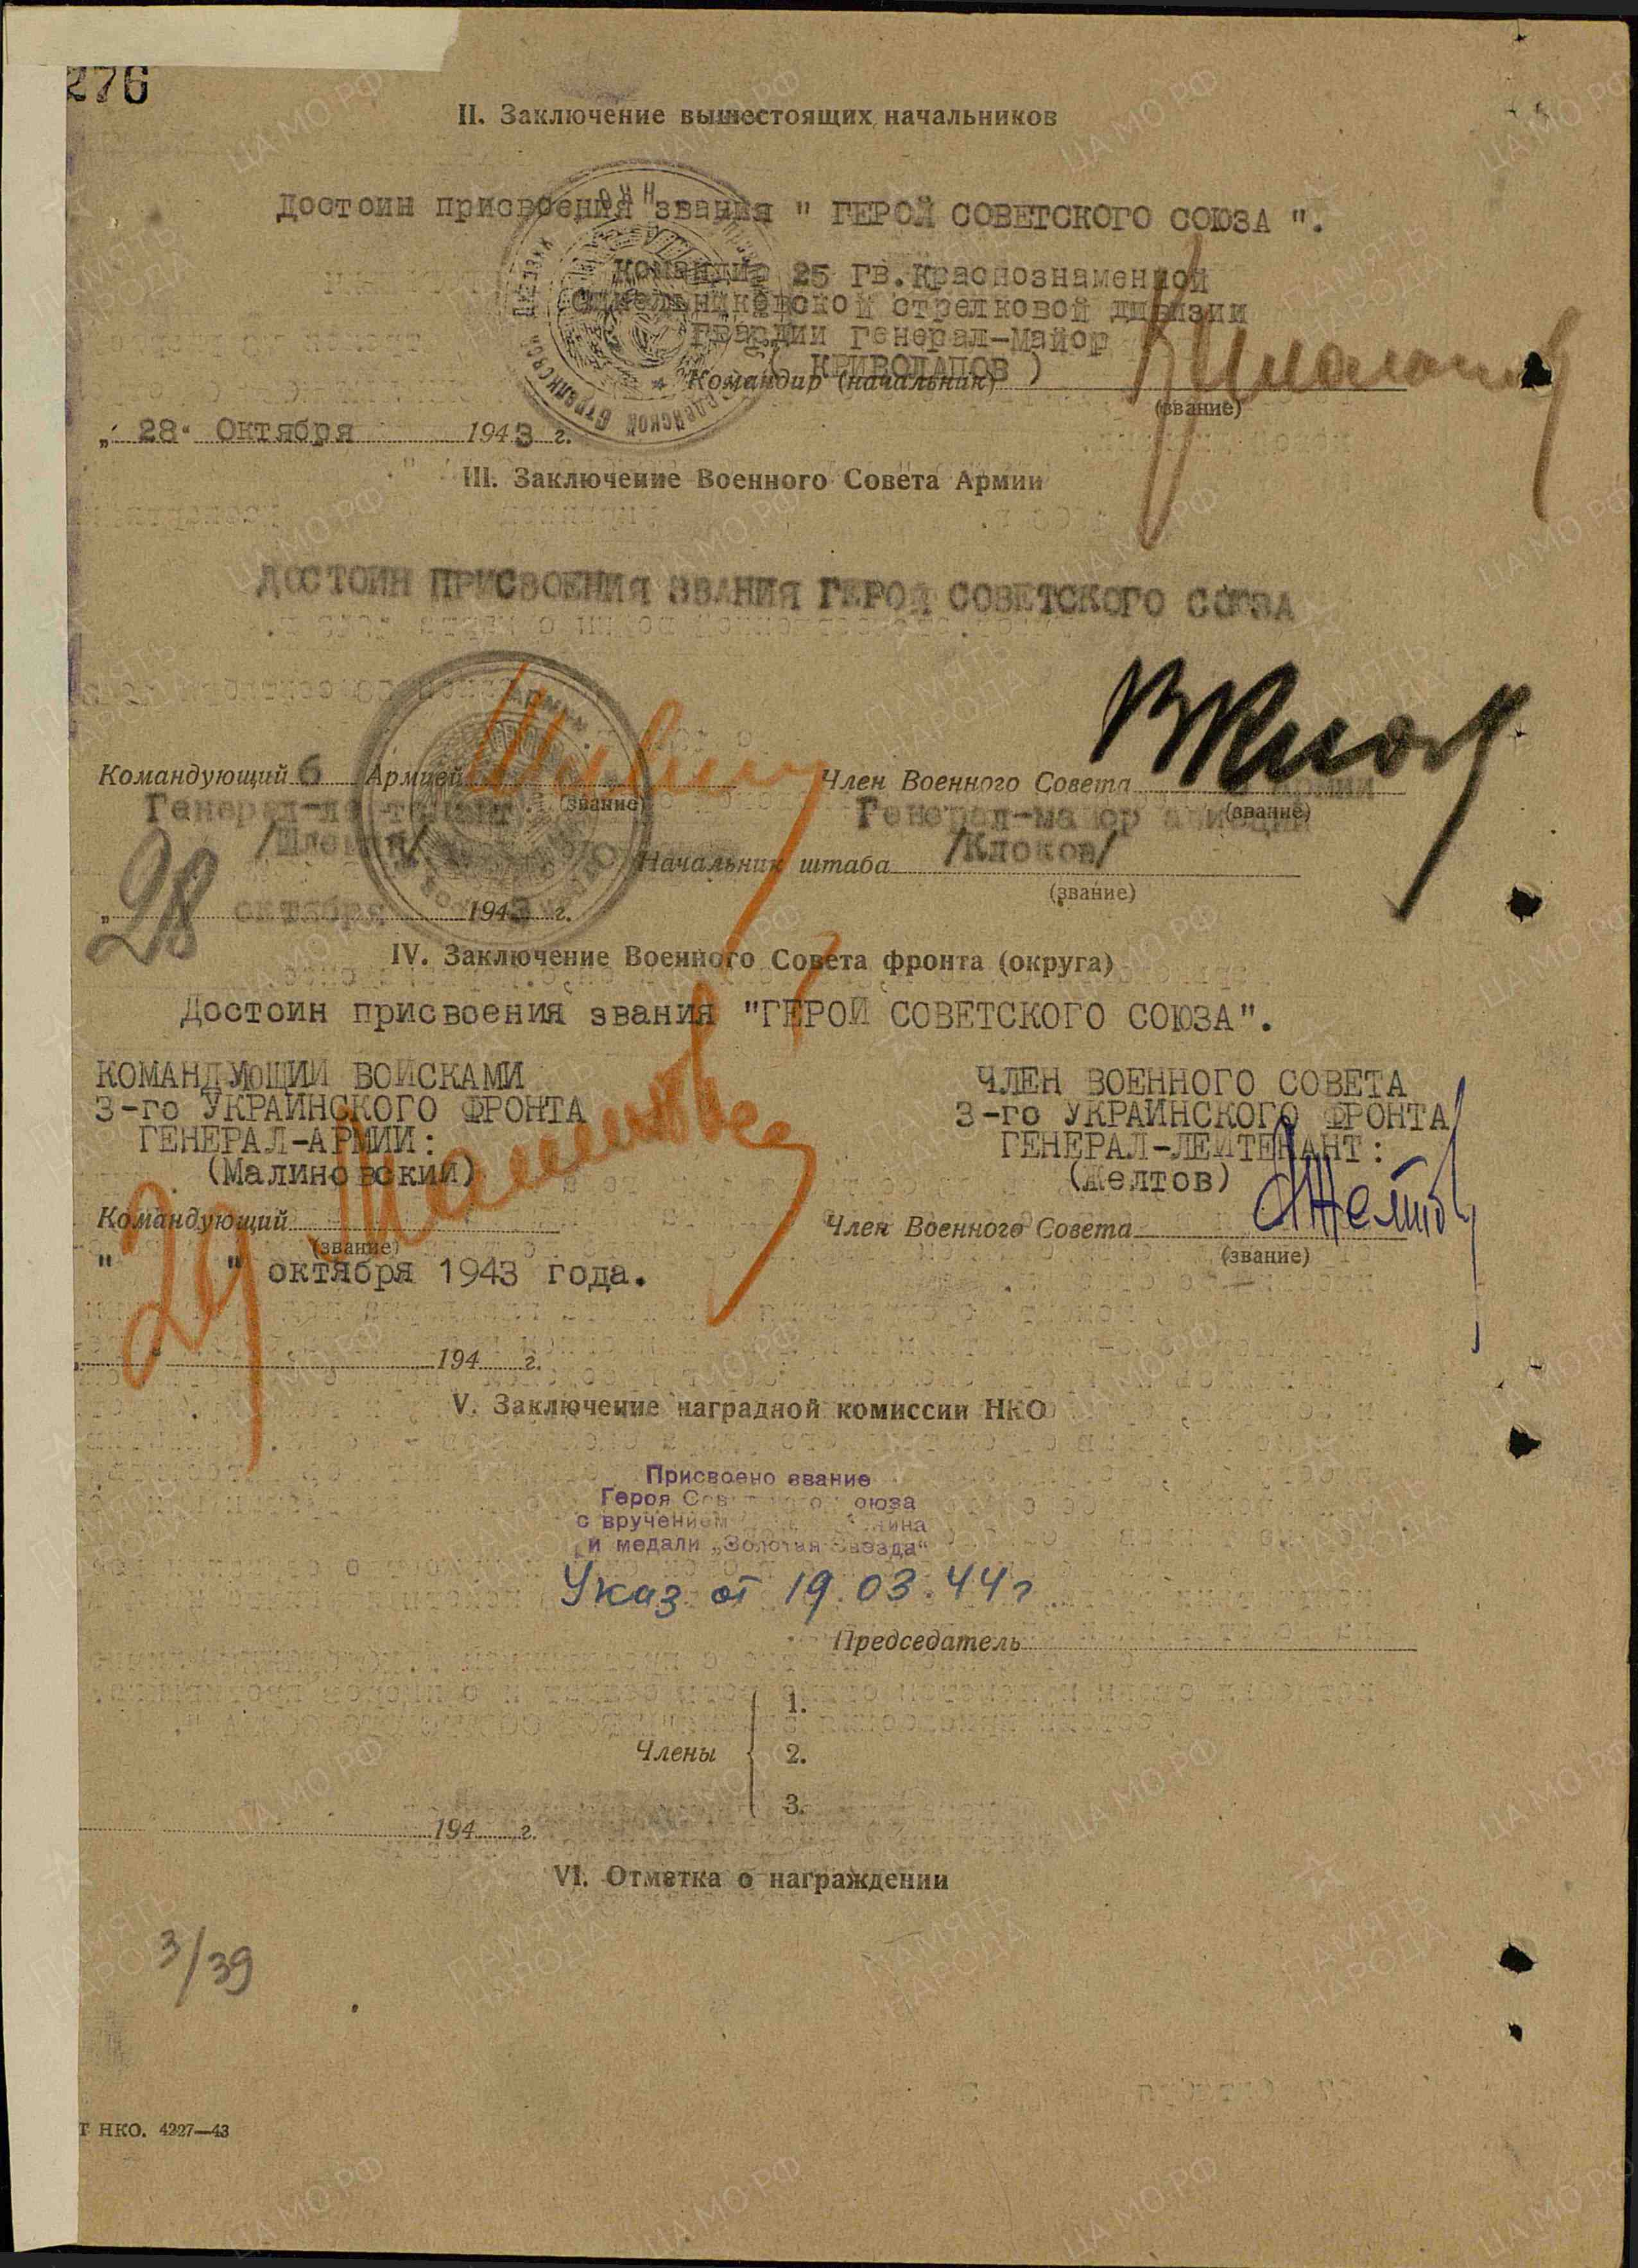 276
II. Заключение вышестоящих начальников
Достоин присвоения звания " ГЕРОЙ СОВЕТСКОГО СОЮЗА ".
Командир 25 Гв.Краснознаменной
Синельниковской стрелковой дивизии
Гвардии Генерал-Майор
( КРИВОЛАПОВ )
Командир (начальник)
(звание)
„ 28 " Октября 1943 г.
III. Заключение Военного Совета Армии
ДОСТОИН ПРИСВОЕНИЯ ЗВАНИЯ ГЕРОЯ СОВЕТСКОГО СОЮЗА
Командующий 6 Армией
Член Военного Совета
(звание)
Генерал-лейтенант
/Шлемин/
Армии
(звание)
Генерал-майор авиации
/Клоков/
Начальник штаба
(звание)
„ 28 октября 1943 г.
IV. Заключение Военного Совета фронта (округа)
Достоин присвоения звания "ГЕРОЙ СОВЕТСКОГО СОЮЗА".
КОМАНДУЮЩИЙ ВОЙСКАМИ
3-го УКРАИНСКОГО ФРОНТА
ГЕНЕРАЛ-АРМИИ:
(Малиновский)
ЧЛЕН ВОЕННОГО СОВЕТА
3-го УКРАИНСКОГО ФРОНТА
ГЕНЕРАЛ-ЛЕЙТЕНАНТ:
(Желтов)
Командующий
(звание)
Член Военного Совета
(звание)
" 29 " октября 1943 года.
„ " 194 г.
V. Заключение наградной комиссии НКО
Присвоено звание
Героя Советского Союза
с вручением Ленина
и медали „Золотая Звезда"
Указ от 19.03.44г
Председатель
Члены
1.
2.
3.
194 г.
VI. Отметка о награждении
3/39
Т НКО. 4227—43
ЦА МО РФ
ПАМЯТЬ НАРОДА